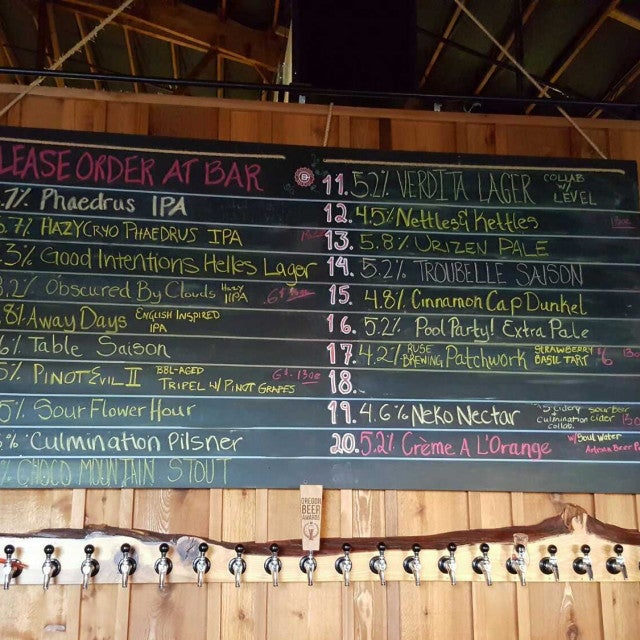 LEASE ORDER AT BAR
.7% Phaedrus IPA
5.7% HAZY CRYO PHAEDRUS IPA
.3% Good Intentions Helles Lager
8.2% Obscured By Clouds Hazy IIPA 6$ 13oz
.8% Away Days ENGLISH INSPIRED IPA
6% Table Saison
5% PINOT EVIL II BBL-AGED TRIPEL W/ PINOT GRAPES 6$-13oz
5% Sour Flower Hour
% Culmination Pilsner
% CHOCO MOUNTAIN STOUT
11. 5.2% VERDITA LAGER COLLAB W/ LEVEL
12. 4.5% Nettles & Kettles
13. 5.8% URIZEN PALE
14. 5.2% TROUBELLE SAISON
15. 4.8% Cinnamon Cap Dunkel
16. 5.2% Pool Party! Extra Pale
17. 4.2% RUSE BREWING Patchwork STRAWBERRY BASIL TART $6 13oz
18.
19. 4.6% Neko Nectar cidery culmination collab. sour beer cider
20. 5.2% Crème A L'Orange w/ Soul Water Artisan Beer
OREGON BEER AWARDS